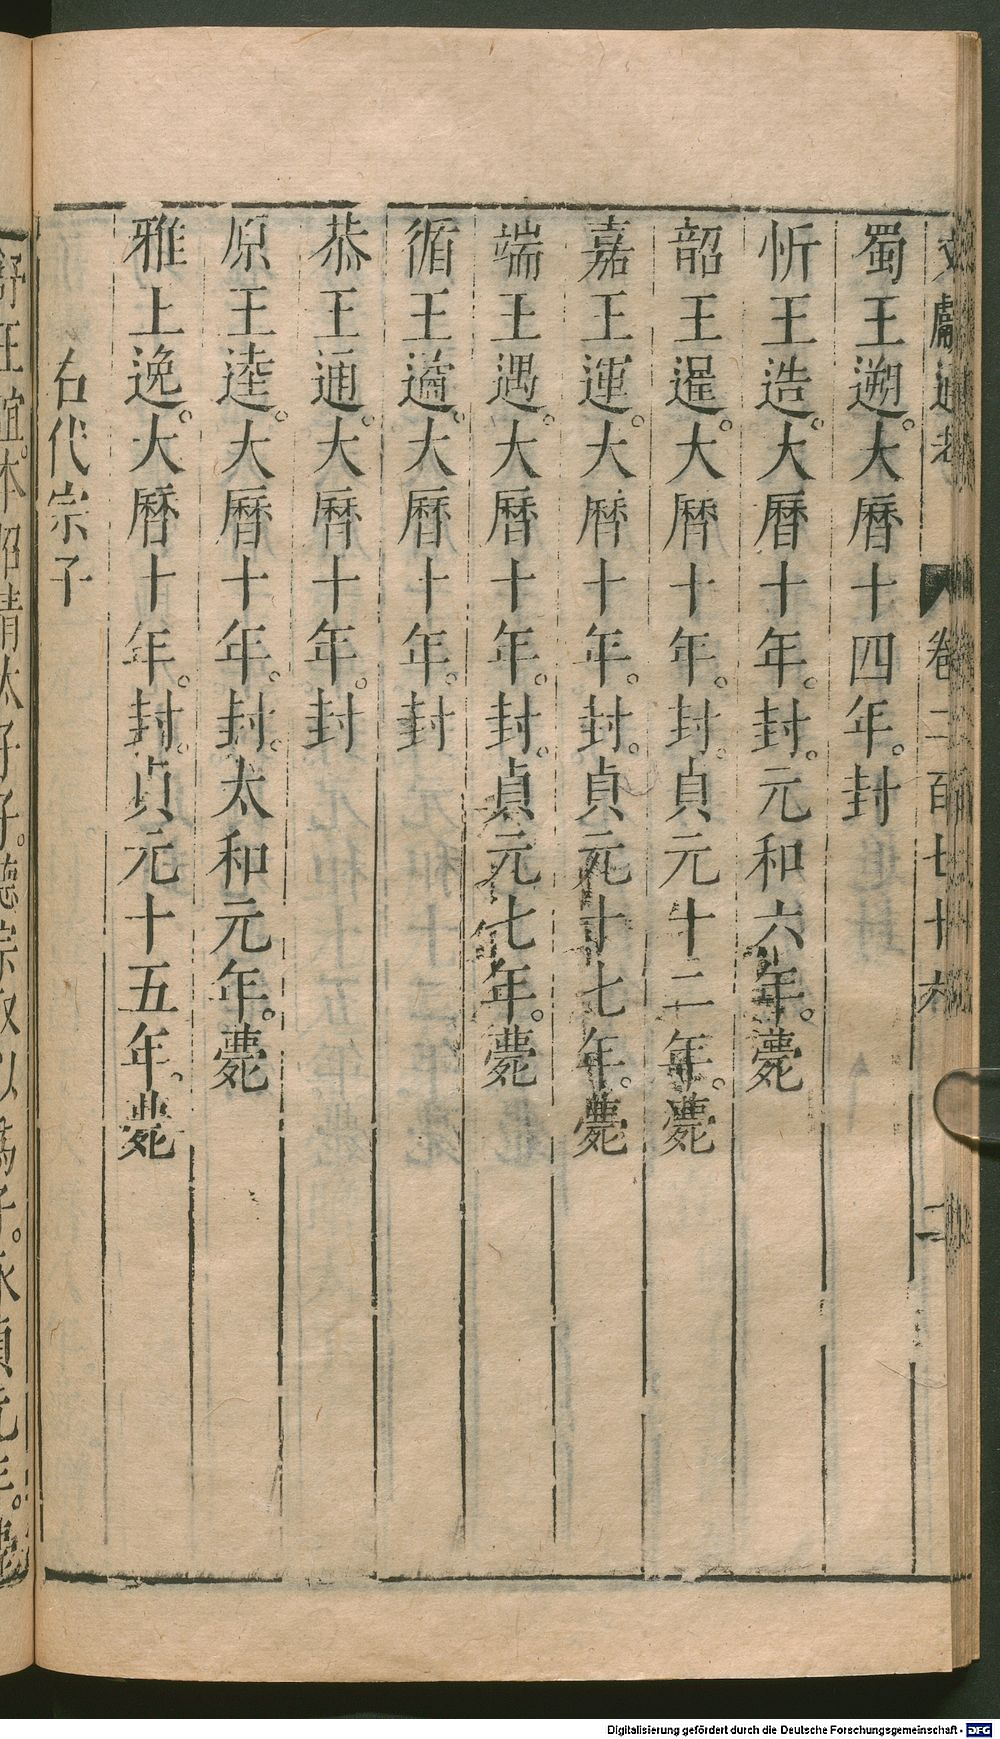 文獻通考 卷二百七十六 二
蜀王遡。大曆十四年。封
忻王造。大曆十年。封。元和六年。薨
韶王暹。大曆十年。封。貞元十二年。薨
嘉王運。大曆十年。封。貞元十七年。薨
端王遇。大曆十年。封。貞元七年。薨
循王遹。大曆十年。封
恭王通。大曆十年。封
原王逵。大曆十年。封。太和元年。薨
雅王逸。大曆十年。封。貞元十五年。薨
右代宗子
舒王誼。本昭靖太子子。德宗取以爲子。永貞元年。薨
Digitalisierung gefördert durch die Deutsche Forschungsgemeinschaft - DFG